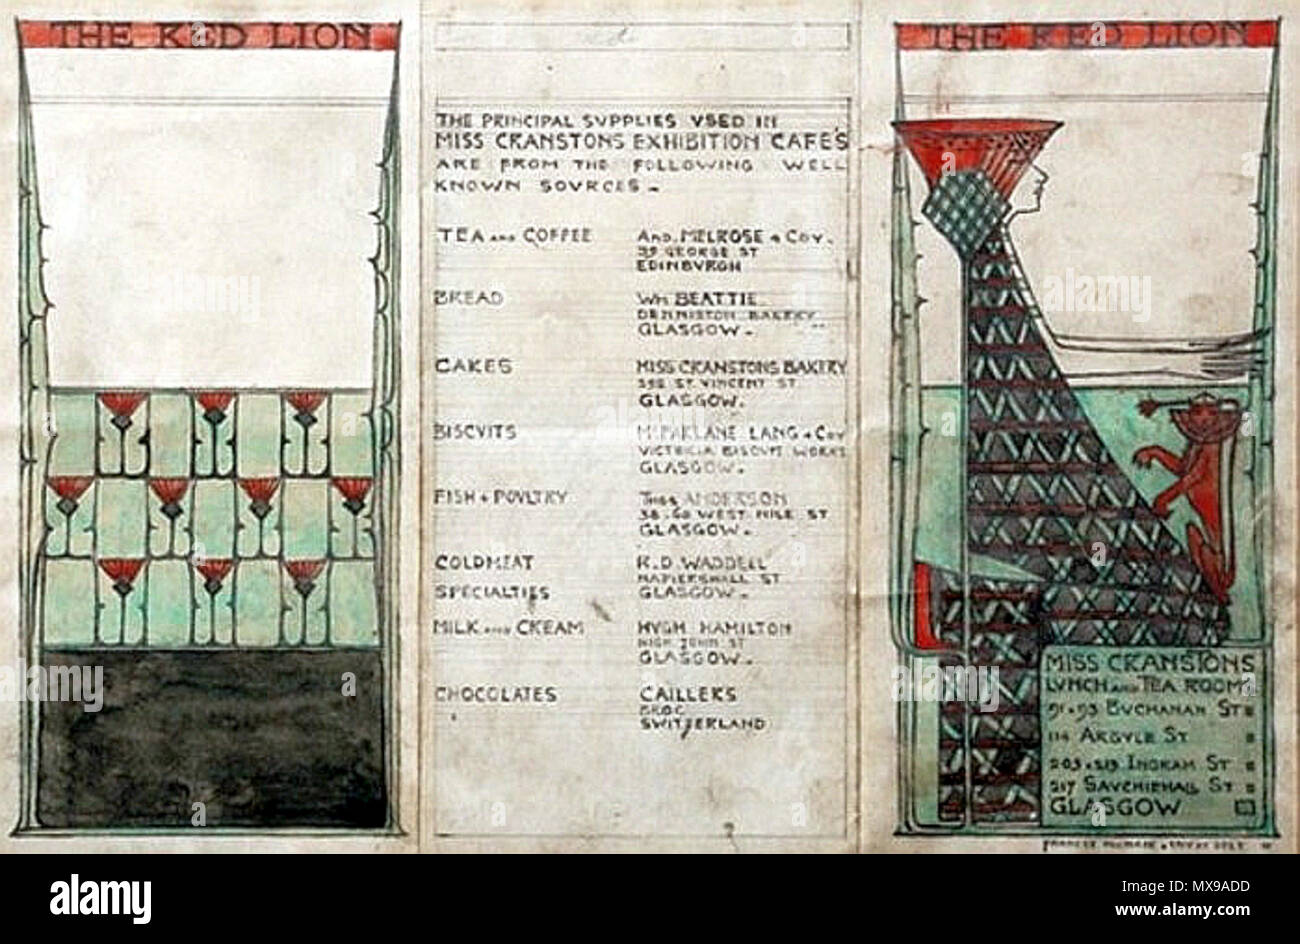 THE RED LION
THE PRINCIPAL SVPPLIES VSED IN
MISS CRANSTONS EXHIBITION CAFE'S
ARE FROM THE FOLLOWING WELL
KNOWN SOVRCES -
TEA AND COFFEE
AND. MELROSE & COY.
39 GEORGE ST
EDINBVRGH
BREAD
WM BEATTIE
DENNISTON BAKERY
GLASGOW -
CAKES
MISS CRANSTONS BAKERY
ST VINCENT ST
GLASGOW.
BISCVITS
MCFARLANE LANG & COY
VICTORIA BISCVIT WORKS
GLASGOW -
FISH & POVLTRY
THOS ANDERSON
WEST NILE ST
GLASGOW -
COLDMEAT
SPECIALTIES
R.D. WADDELL
NAPIERSHALL ST
GLASGOW -
MILK AND CREAM
HVGH HAMILTON
HIGH JOHN ST
GLASGOW -
CHOCOLATES
CAILLERS
BROC
SWITZERLAND
THE RED LION
MISS CRANSTONS
LVNCH AND TEA ROOMS
91 & 93 BUCHANAN ST
114 ARGYLE ST
203 & 213 INGRAM ST
217 SAVCHIEHALL ST
GLASGOW
alamy
Image ID: MX9ADD
www.alamy.com